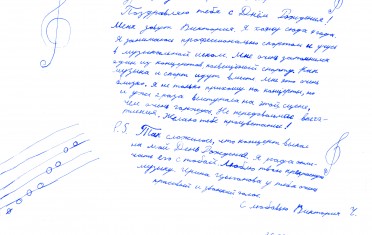 Поздравляю тебя с Днём Рождения!
Меня зовут Виктория. Я хожу сюда 2 года.
Я занимаюсь профессионально спортом и учусь
в музыкальной школе. Мне очень запомнился
один из концертов посвящённый спорту. Как
музыка и спорт идут вместе мне это очень
близко. Я не только прихожу на концерты, но
и уже 2 раза выступала на этой сцене,
чем очень горжусь. Не передаваемые впеча-
тления. Желаю тебе процветания!
P.S. Так сложилось, что концерт выпал
на мой День Рождения. Я рада
его с тобой. Люблю твою
музыку. Ирина у тебя очень
красивый и звонкий голос.
С любовью Виктория Ч.